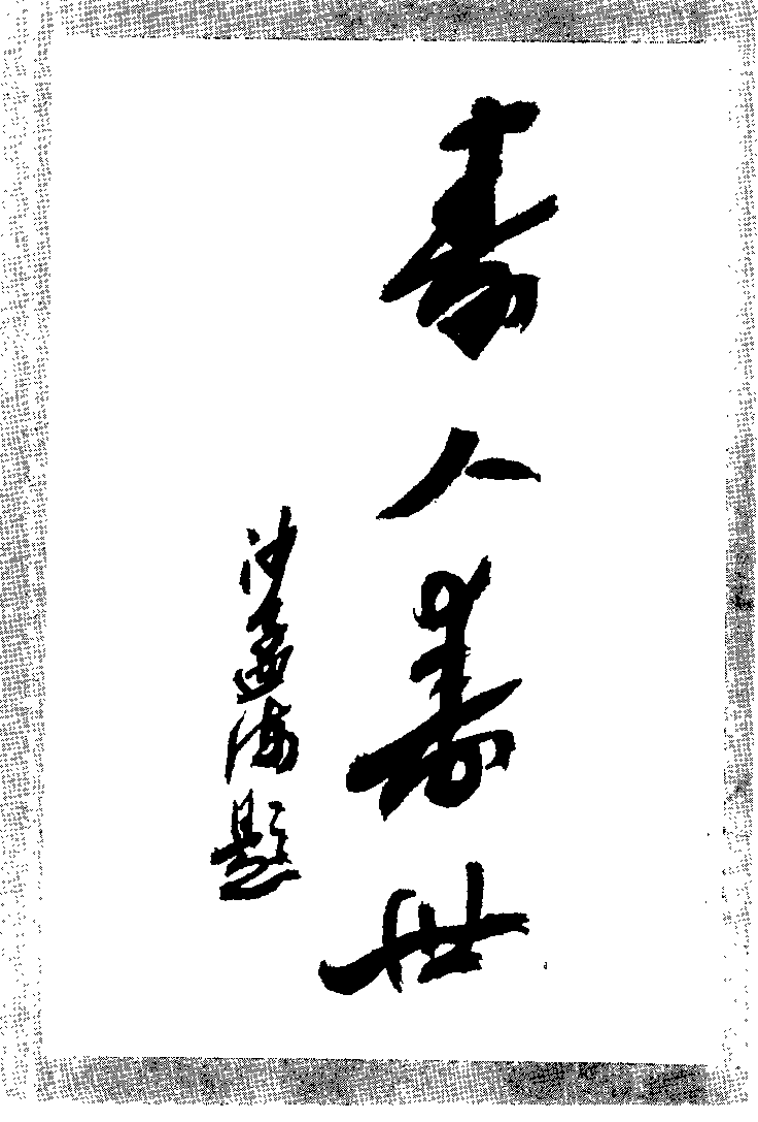 寿人寿世
沙孟海题